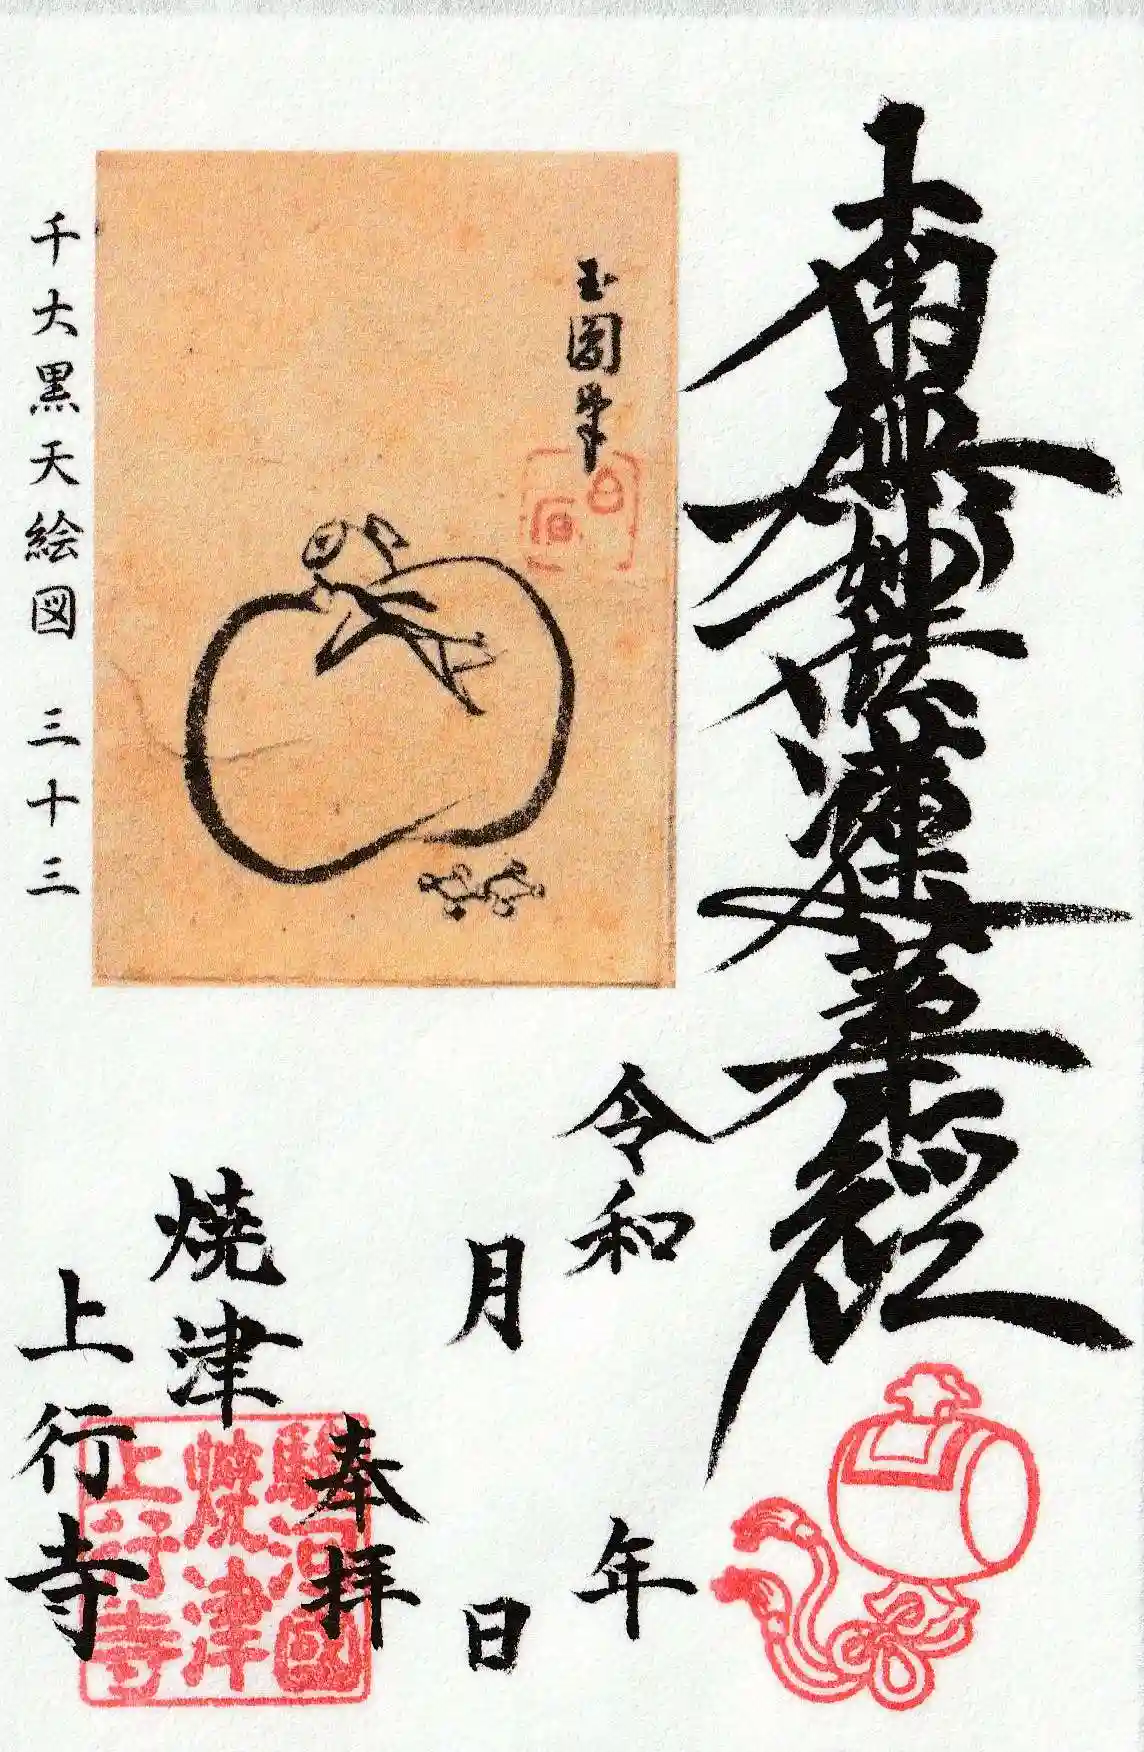 南無妙法蓮華経
令和　年
月　日
奉拝
焼津
上行寺
玉圓筆
千大黒天絵図 三十三
駿河國
焼津
上行寺